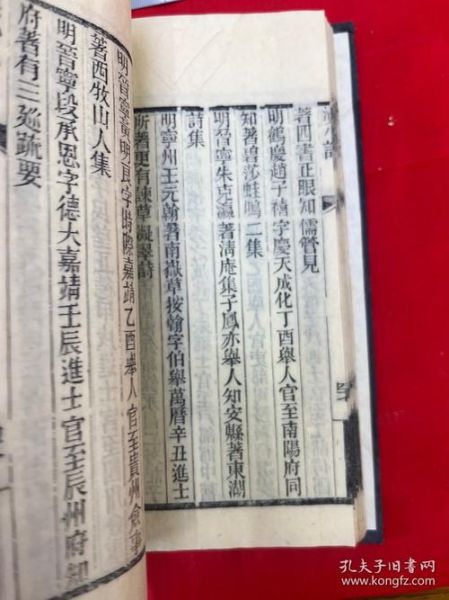 滇小記
著四書正眼知儒管見
明鶴慶趙子禧字慶天成化丁酉舉人官至南陽府同
知著碧莎蛙鳴二集
明晉寧朱克瀛著淸庵集子鳳亦舉人知安縣著東湖
詩集
明寧州王元翰著南嶽草按翰字伯舉萬曆辛丑進士
所著更有諫草凝翠詩
明晉寧黃明良字時際嘉靖乙酉舉人官至貴州僉事
著西牧山人集
明晉寧段承恩字德大嘉靖壬辰進士官至辰州府知
府著有三廵疏要
孔夫子旧书网
www.kongfz.com